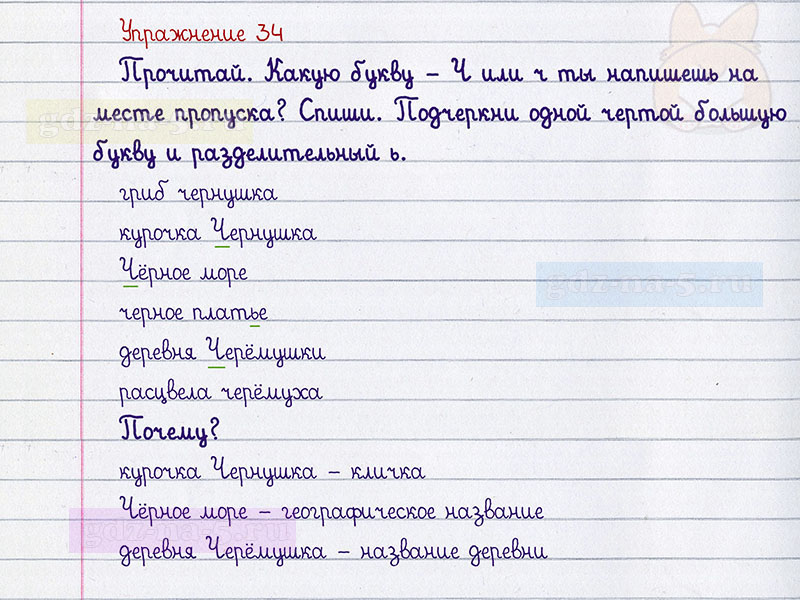 Упражнение 34
Прочитай. Какую букву – Ч или ч ты напишешь на
месте пропуска? Спиши. Подчеркни одной чертой большую
букву и разделительный ь.
гриб чернушка
курочка Чернушка
Чёрное море
gdz-na-5.ru
черное платье
деревня Черёмушки
расцвела черёмуха
Почему?
курочка Чернушка – кличка
Чёрное море – географическое название
деревня Черёмушка – название деревни